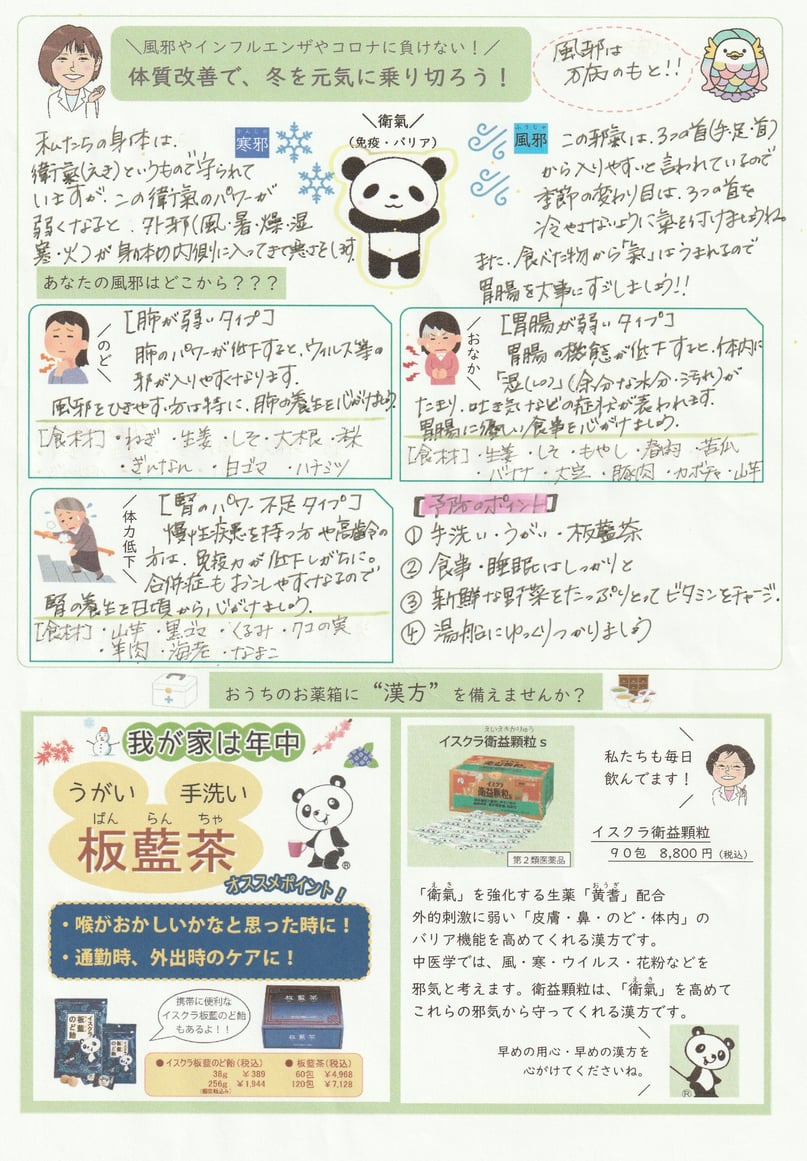 ＼風邪やインフルエンザやコロナに負けない！／
体質改善で、冬を元気に乗り切ろう！
風邪は
万病のもと!!
私たちの身体は、
衛氣(えき)というもので守られて
いますが、この衛氣のパワーが
弱くなると、外邪(風・暑・燥・湿
寒・火)が身体の内側に入ってきて悪さをします。
かんじゃ
寒邪
＼衛氣／
(免疫・バリア)
ふうじゃ
風邪
この邪氣は、3つの首(手・足・首)
から入りやすいと言われているので
季節の変わり目は、3つの首を
冷やさないように氣を付けましょうね。
また、食べた物から「氣」はうまれるので
胃腸を大事にすごしましょう!!
あなたの風邪はどこから？？？
＼のど／
[肺が弱いタイプ]
肺のパワーが低下すると、ウィルス等の
邪が入りやすくなります。
風邪をひきやすい方は特に、肺の養生を心がけましょう。
[食材]・ねぎ・生姜・しそ・大根・梨
・ぎんなん・白ゴマ・ハチミツ
＼おなか／
[胃腸が弱いタイプ]
胃腸の機能が低下すると、体内に
「湿(しつ)」(余分な水分・汚れ)が
たまり、吐き気などの症状が表われます。
胃腸に優しい食事を心がけましょう。
[食材]・生姜・しそ・もやし・春雨・苦瓜
・バナナ・大豆・豚肉・カボチャ・山芋
＼体力低下／
[腎のパワー不足タイプ]
慢性疾患を持つ方や高齢の
方は、免疫力が低下しがちに。
合併症もおこしやすくなるので
腎の養生を日頃から心がけましょう。
[食材]・山芋・黒ゴマ・くるみ・クコの実
・羊肉・海老・なまこ
[予防のポイント]
① 手洗い・うがい・板藍茶
② 食事・睡眠はしっかりと
③ 新鮮な野菜をたっぷりとってビタミンをチャージ。
④ 湯船にゆっくりつかりましょう
おうちのお薬箱に“漢方”を備えませんか？
我が家は年中
うがい　手洗い
ばん らん ちゃ
板藍茶
®
オススメポイント！
・喉がおかしいかなと思った時に！
・通勤時、外出時のケアに！
イスクラ
板藍のど飴
携帯に便利な
イスクラ板藍のど飴
もあるよ！！
板藍茶
●イスクラ板藍のど飴(税込)
38g ￥389
256g ￥1,944
(個包装込み)
●板藍茶(税込)
60包 ￥4,968
120包 ￥7,128
えいえきかりゅう
イスクラ衛益顆粒S
イスクラ
衛益顆粒S
第２類医薬品
＼私たちも毎日
飲んでます！／
イスクラ衛益顆粒
９０包 8,800円(税込)
えき おうぎ
「衛氣」を強化する生薬「黄耆」配合
外的刺激に弱い「皮膚・鼻・のど・体内」の
バリア機能を高めてくれる漢方です。
中医学では、風・寒・ウイルス・花粉などを
えき
邪気と考えます。衛益顆粒は、「衛氣」を高めて
これらの邪気から守ってくれる漢方です。
＼早めの用心・早めの漢方を
心がけてくださいね。／
®